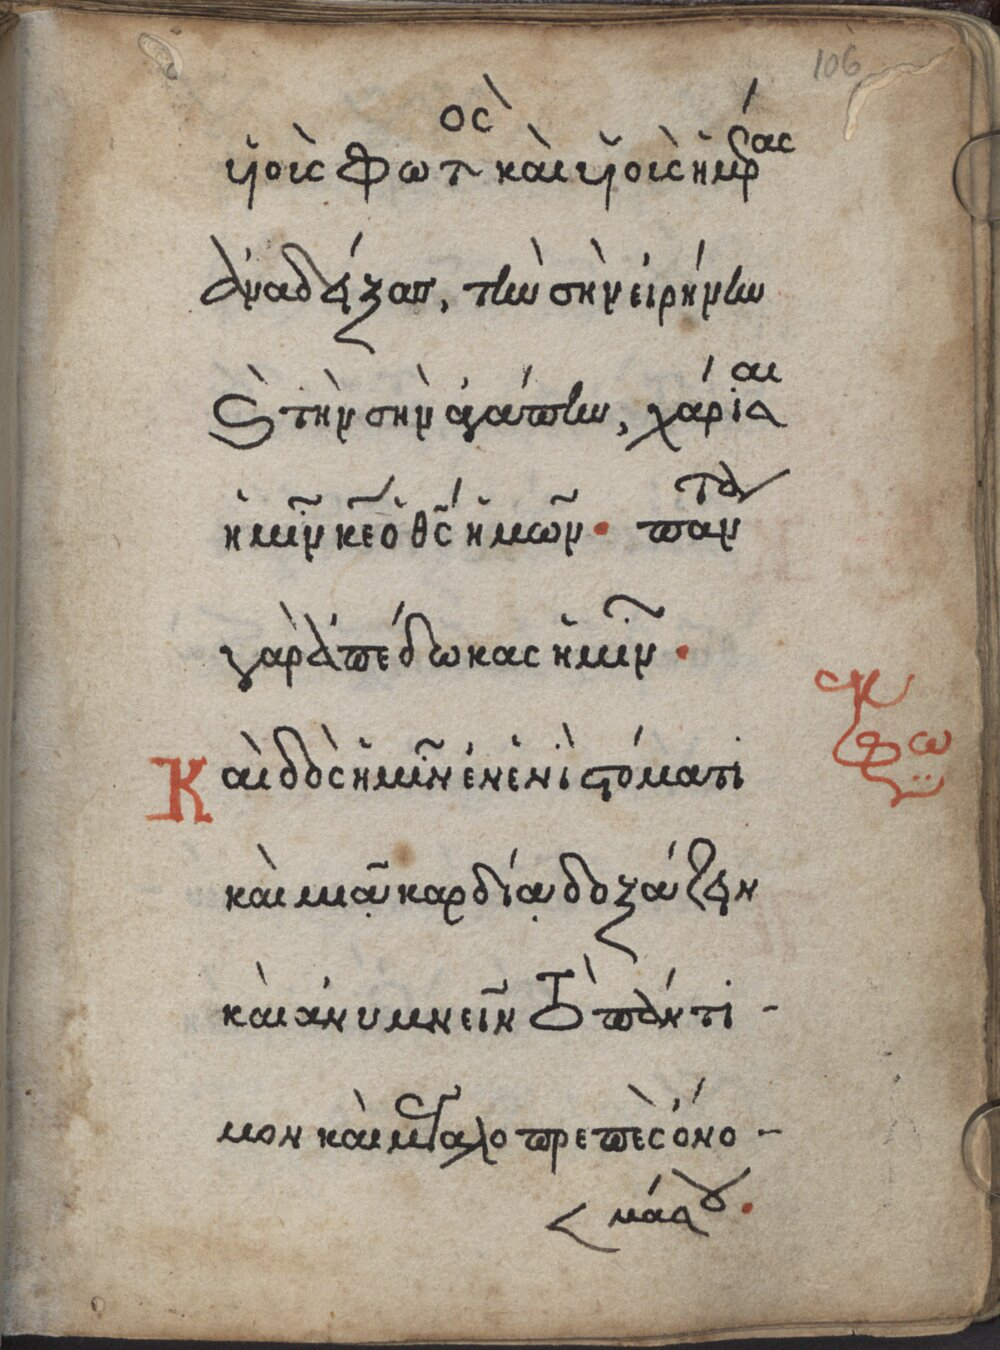 106
ὑιοὶς φωτὸς καὶ ὑιοὶς ἡμέρας
ἀναδείξας, τὴν σὴν εἰρήνην
καὶ τὴν σὴν ἀγάπην, χάρισαι
ἡμῖν κε ὁ θς ἡμῶν· πάντα
γὰρ ἀπέδωκας ἡμῖν·
Καὶ δὸς ἡμῖν ἐν ἑνὶ στόματι
καὶ μιᾷ καρδίᾳ δοξάζειν
καὶ ἀνυμνεῖν τὸ πάντι-
μον καὶ μεγαλοπρεπὲς ὄνο-
μά σου·